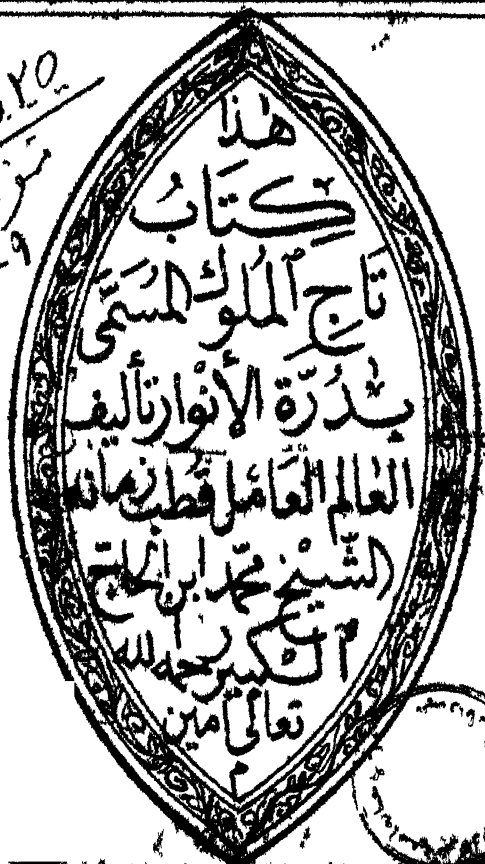 هٰذَا
كِتَابُ
تَاجِ ٱلْمُلُوكِ المُسَمَّى
بِدُرَّةِ الأَنْوَارِ تأليف
العالم العَامِل قُطب زمانه
الشَّيْخ محمّد ابن الحاجّ
الكبير رحمه الله
تعالى آمين
م